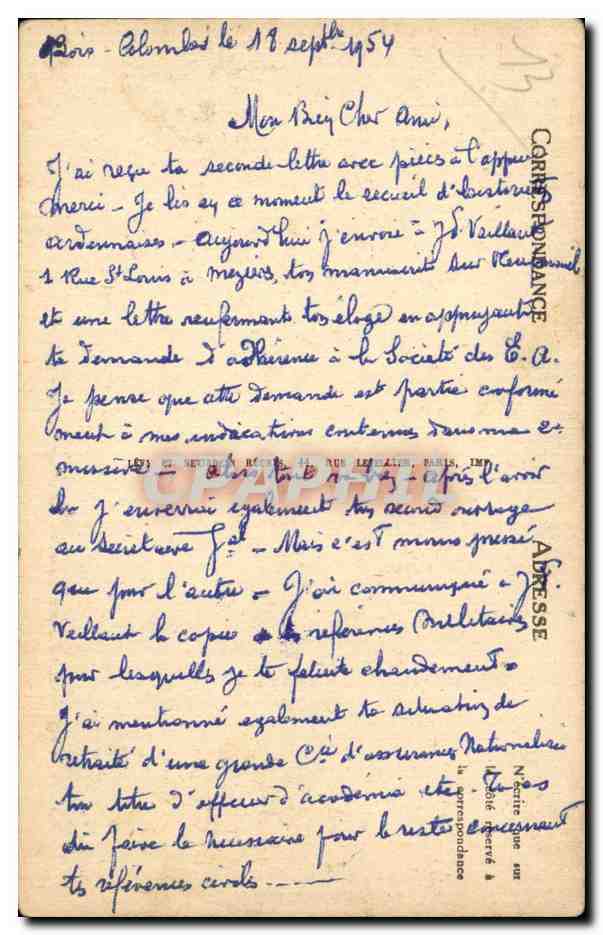 Bois-Colombes le 18 septbre 1954
Mon Bien Cher Ami,
J'ai reçu ta seconde lettre avec pièces à l'appui
merci - Je lis en ce moment le recueil d'histoires
ardennaises - Aujourd'hui j'envoie à J. Vaillant
1 Rue St Louis à Mezières, ton manuscrit sur
et une lettre renfermant ton éloge en appuyant
ta demande d'adhérence à la Société des E. A.
Je pense que cette demande est partie conformé
ment à mes indications contenues dans ma 2e
missive - alors tout ira très - après l'avoir
lu j'enverrai également ton second ouvrage
au secrétaire Gal - Mais c'est moins pressé
que pour l'autre - J'ai communiqué à J.
Vaillant la copie références Militaires
pour lesquelles je te félicite chaudement =
J'ai mentionné également ta situation de
retraité d'une grande Cie d'assurances Nationalisée
ton titre d'officier d'académie etc - Tu as
dû faire le nécessaire pour le reste concernant
tes références civiles
13
CORRESPONDANCE
ADRESSE
N'écrire que sur
le côté réservé à
la correspondance
LÉVY ET NEURDEIN RÉUNIS, 44, RUE LETELLIER, PARIS, IMP.
CPAPHIL